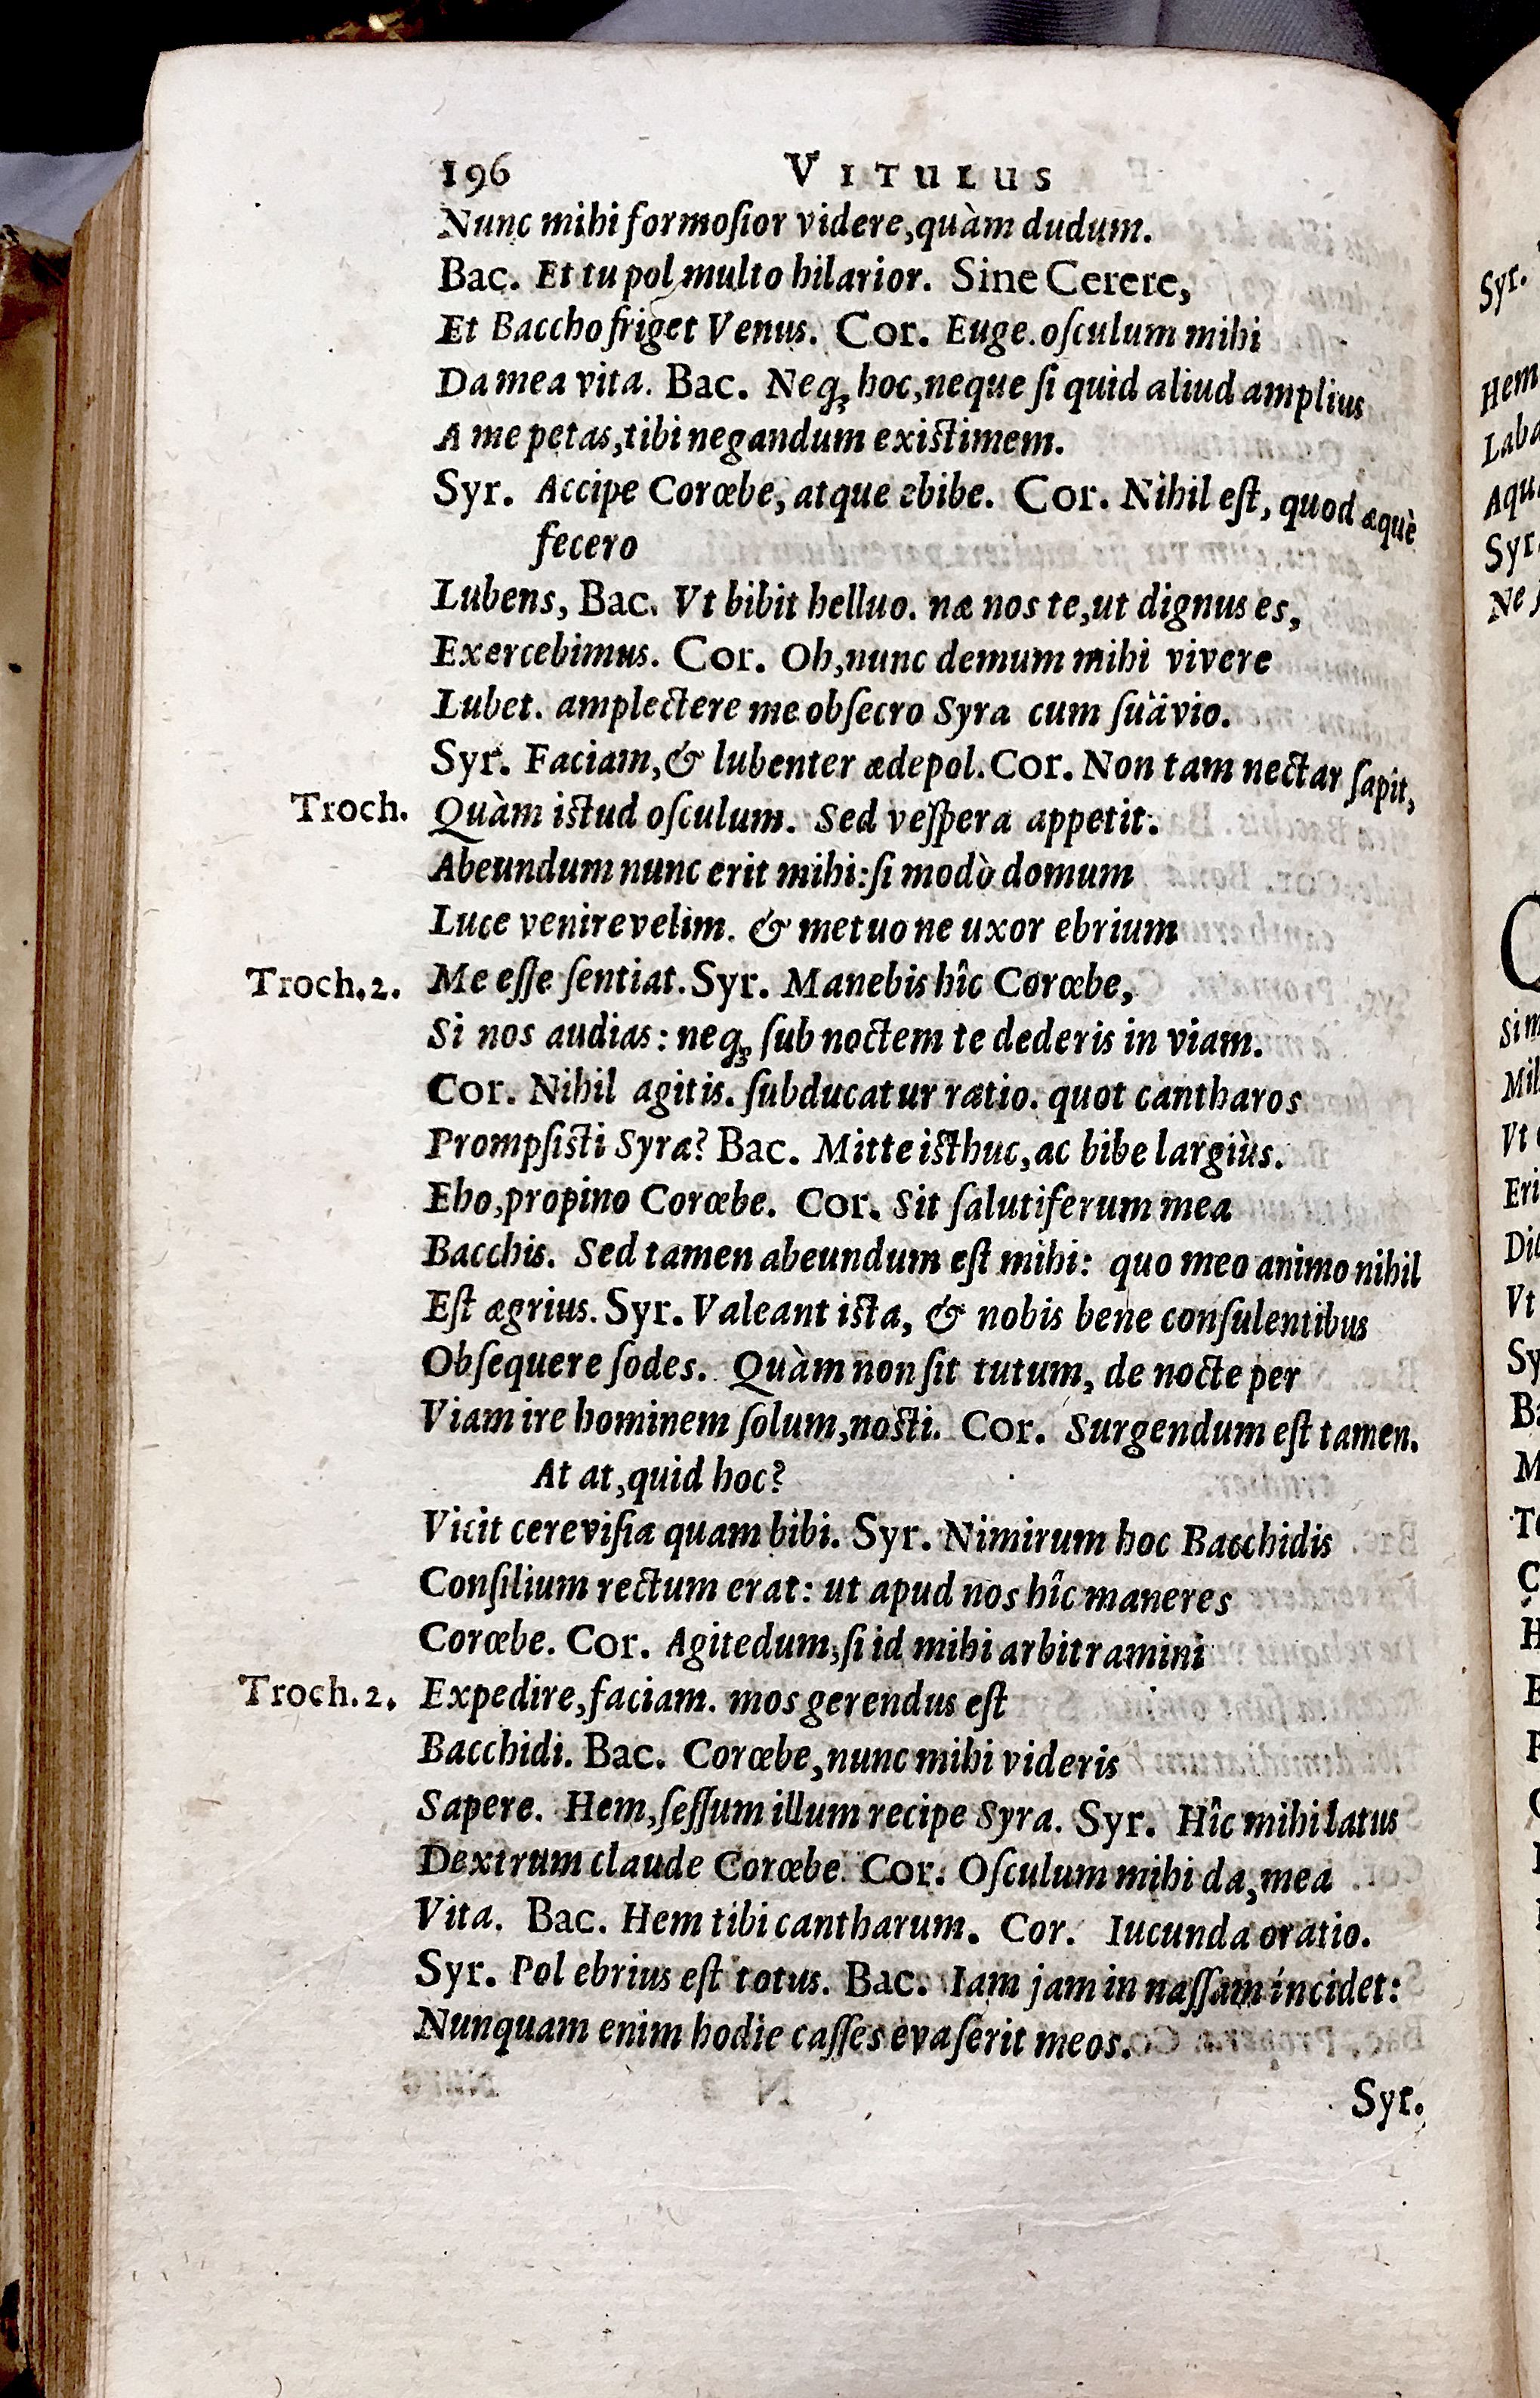 196 VITULUS
Nunc mihi formoſior videre, quàm dudum.
Bac. Et tu pol multo hilarior. Sine Cerere,
Et Baccho friget Venus. Cor. Euge. oſculum mihi
Da mea vita. Bac. Neq; hoc, neque ſi quid aliud amplius
A me petas, tibi negandum exiſtimem.
Syr. Accipe Corœbe, atque ebibe. Cor. Nihil eſt, quod æquè
fecero
Lubens, Bac. Vt bibit helluo. næ nos te, ut dignus es,
Exercebimus. Cor. Oh, nunc demum mihi vivere
Lubet. amplectere me obſecro Syra cum ſuävio.
Syr. Faciam, & lubenter ædepol. Cor. Non tam nectar ſapit,
Troch. Quàm iſtud oſculum. Sed veſpera appetit.
Abeundum nunc erit mihi: ſi modò domum
Luce venire velim. & metuo ne uxor ebrium
Troch. 2. Me eſſe ſentiat. Syr. Manebis hîc Corœbe,
Si nos audias: neq; ſub noctem te dederis in viam.
Cor. Nihil agitis. ſubducatur ratio. quot cantharos
Prompſiſti Syra? Bac. Mitte iſthuc, ac bibe largiùs.
Eho, propino Corœbe. Cor. Sit ſalutiferum mea
Bacchis. Sed tamen abeundum eſt mihi: quo meo animo nihil
Eſt ægrius. Syr. Valeant iſta, & nobis bene conſulentibus
Obſequere ſodes. Quàm non ſit tutum, de nocte per
Viam ire hominem ſolum, noſti. Cor. Surgendum eſt tamen.
At at, quid hoc?
Vicit cereviſia quam bibi. Syr. Nimirum hoc Bacchidis
Conſilium rectum erat: ut apud nos hîc maneres
Corœbe. Cor. Agitedum, ſi id mihi arbitramini
Troch. 2. Expedire, faciam. mos gerendus eſt
Bacchidi. Bac. Corœbe, nunc mihi videris
Sapere. Hem, ſeſſum illum recipe Syra. Syr. Hîc mihi latus
Dextrum claude Corœbe. Cor. Oſculum mihi da, mea
Vita. Bac. Hem tibi cantharum. Cor. Iucunda oratio.
Syr. Pol ebrius eſt totus. Bac. Iam jam in naſſam incidet:
Nunquam enim hodie caſſes evaſerit meos.
Syr.
Syr.
Hem
Syr
Ne
Vt
Eri
Vt